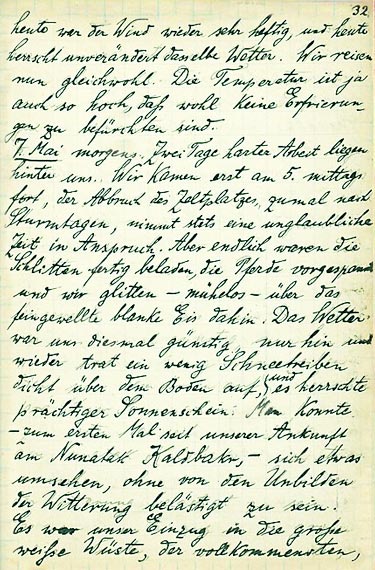 32
heute war der Wind wieder sehr heftig, und heute
herrscht unverändert dasselbe Wetter. Wir reisen
nun gleichwohl. Die Temperatur ist ja
auch so hoch, daß wohl keine Erfrierun-
gen zu befürchten sind.
7. Mai morgens. Zwei Tage harter Arbeit liegen
hinter uns. Wir kamen erst am 5. mittags
fort, der Abbruch des Zeltplatzes, zumal nach
Sturmtagen, nimmt stets eine unglaubliche
Zeit in Anspruch. Aber endlich waren die
Schlitten fertig beladen, die Pferde vorgespannt
und wir glitten – mühelos – über das
feingewellte blanke Eis dahin. Das Wetter
war uns diesmal günstig, nur hin und
wieder trat ein wenig Schneetreiben
dicht über dem Boden auf, (und) es herrschte
prächtiger Sonnenschein. Man konnte
– zum ersten Mal seit unserer Ankunft
am Nunatak Kaldbakr, – sich etwas
umsehen, ohne von den Unbilden
der Witterung belästigt zu sein.
Es war unser Einzug in die große
weiße Wüste, der vollkommensten,